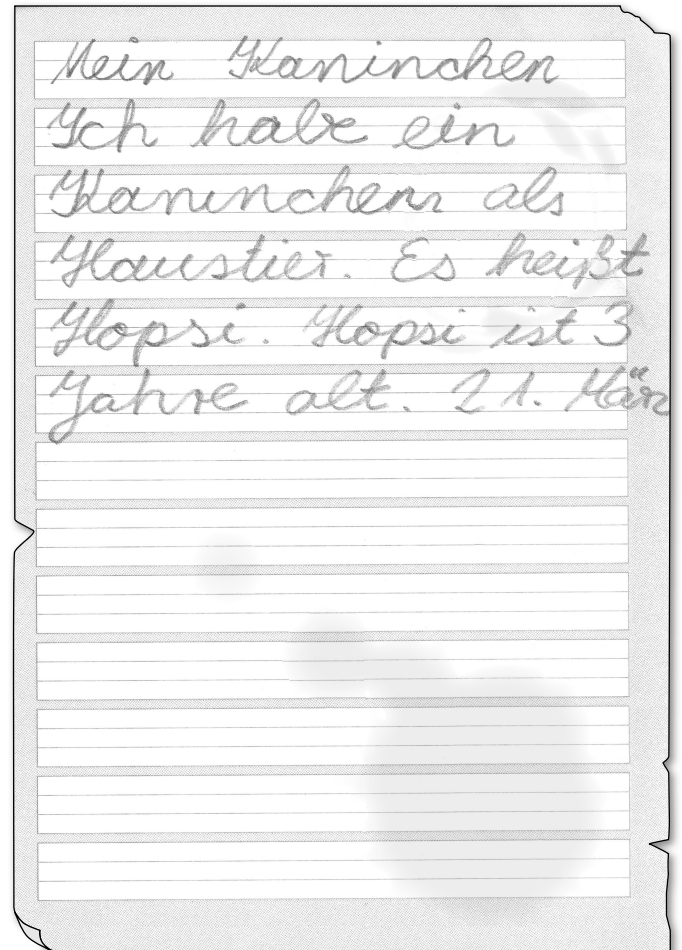 Mein Kaninchen
Ich habe ein
Kaninchen als
Haustier. Es heißt
Hopsi. Hopsi ist 3
Jahre alt. 21. März